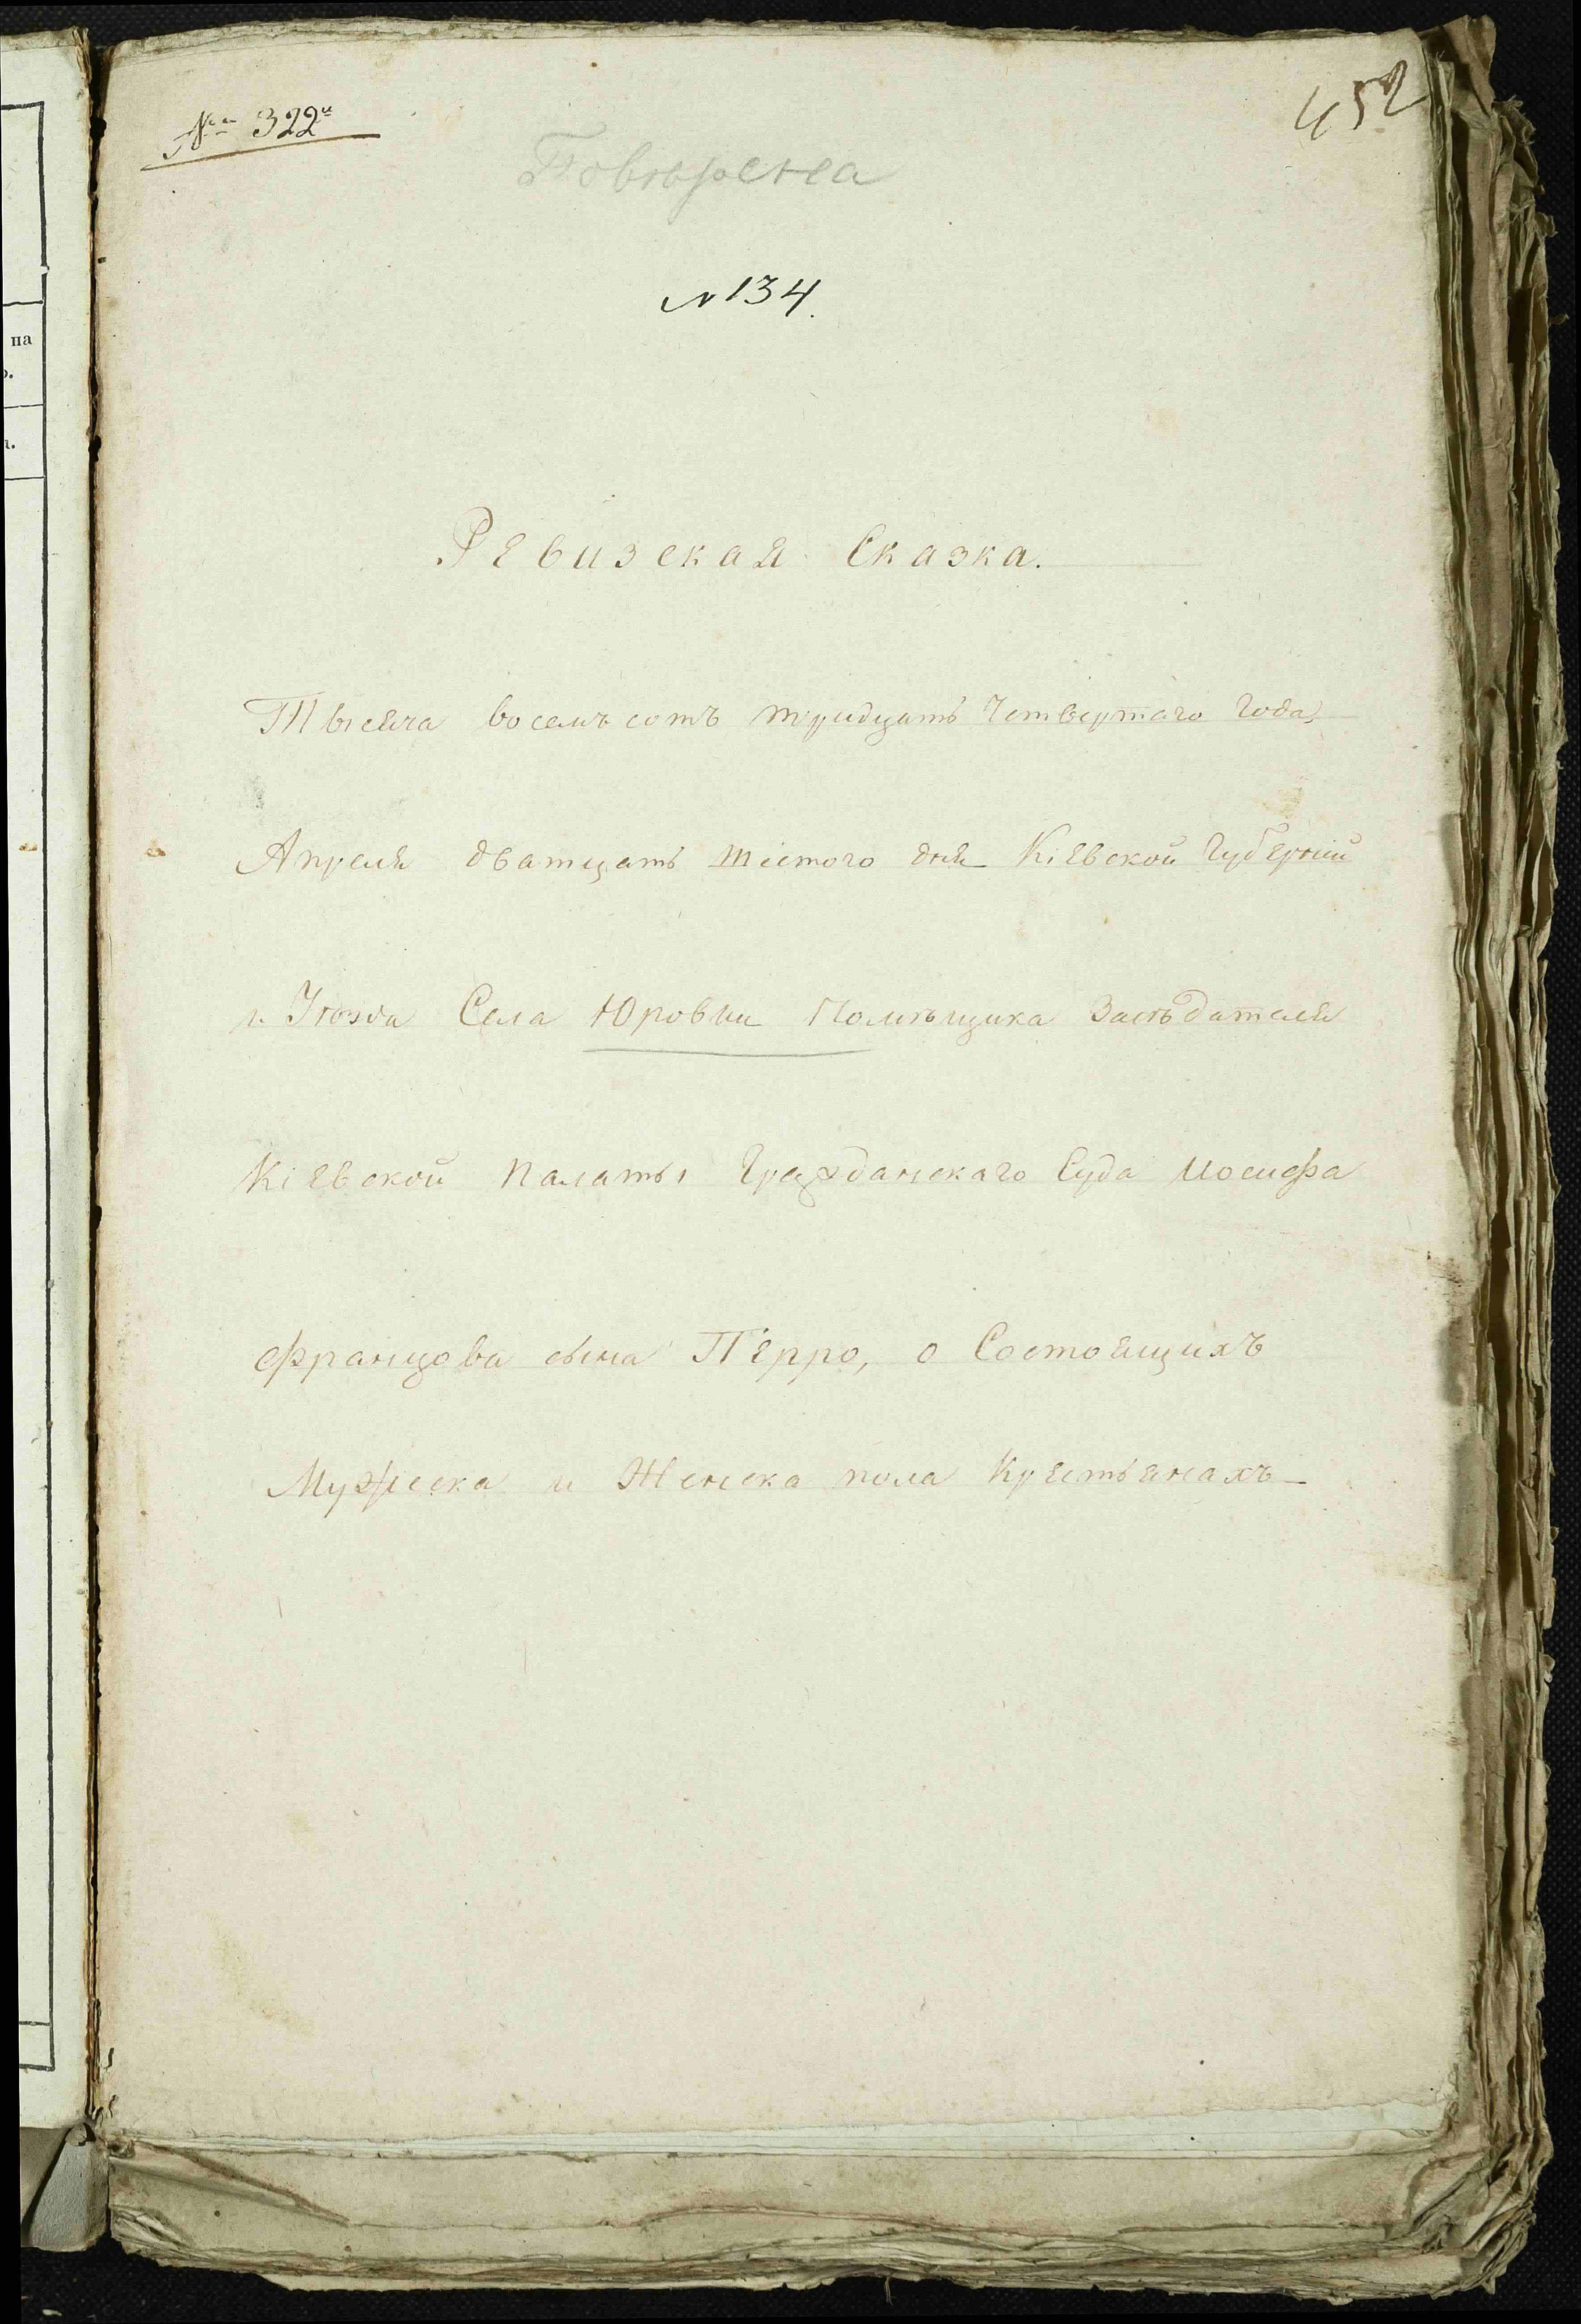 № 322й
452
Повѣрена
№ 134.
Ревизская Сказка.
Тысяча восемъ сотъ тридцать Четвертаго Года,
Апреля дватцать шестого дня Кіевской Губерніи
и Уѣзда Села Юровки Помѣщика Засѣдателя
Кіевской Палаты Гражданскаго Суда Иосифа
Францова сына Перро, о Состоящихъ
Мужеска и Женска пола Крестьянахъ
на